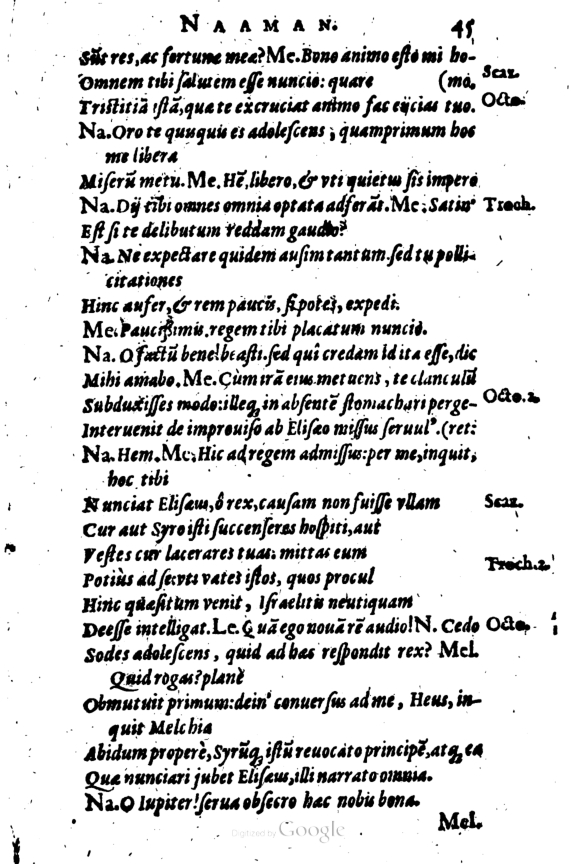 NAAMAN. 45
Sūt res, ac fortunæ meæ? Me. Bono animo esto mi ho-
Omnem tibi salutem esse nuncio: quare (mo, Scaz.
Tristitiā istā, quæ te excruciat animo fac eijcias tuo. Octo.
Na. Oro te quisquis es adolescens, quamprimum hoc
me libera
Miserū metu. Me. Hē, libero, & vti quietus sis impero
Na. Dij tibi omnes omnia optata adferāt. Me. Satin' Troch.
Est si te delibutum reddam gaudio?
Na. Ne expectare quidem ausim tantum. sed tu polli-
citationes
Hinc aufer, & rem paucis, si potes, expedi.
Me. Paucissimis. regem tibi placatum nuncio.
Na. O factū bene! beasti. sed quî credam id ita esse, dic
Mihi amabo. Me. Cùm irā eius metuens, te clanculū
Subduxisses modo: illeq; in absentē stomachari perge- Octo. 2
Interuenit de improuiso ab Elisæo missus seruul⁹. (ret:
Na. Hem. Me. Hic ad regem admissus: per me, inquit,
hoc tibi
Nunciat Elisæus, ô rex, causam non fuisse vllam Scaz.
Cur aut Syro isti succenseres hospiti, aut
Vestes cur lacerares tuas: mittas eum Troch. 2
Potiùs ad se: vts vates istos, quos procul
Hinc quæsitum venit, Israelitis neutiquam
Deesse intelligat. Le. Quā ego nouā rē audio! N. Cedo Octo.
Sodes adolescens, quid ad hæc respondit rex? Mel.
Quid rogas? planè
Obmutuit primum: dein' conuersus ad me, Heus, in-
quit Melchia
Abidum properè, Syrūq; istū reuocato principē, atq; ea
Quæ nunciari jubet Elisæus, illi narrato omnia.
Na. O Iupiter! serua obsecro hæc nobis bona.
Mel.
Digitized by Google